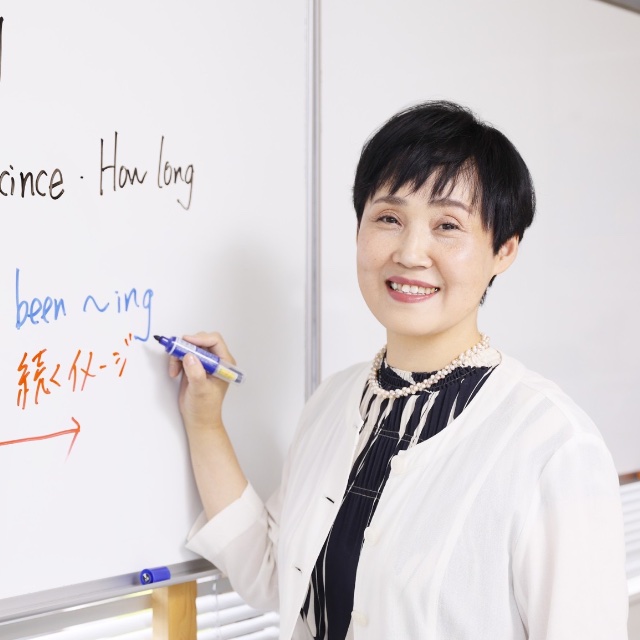 cince · How long
been ~ing
続くイメージ